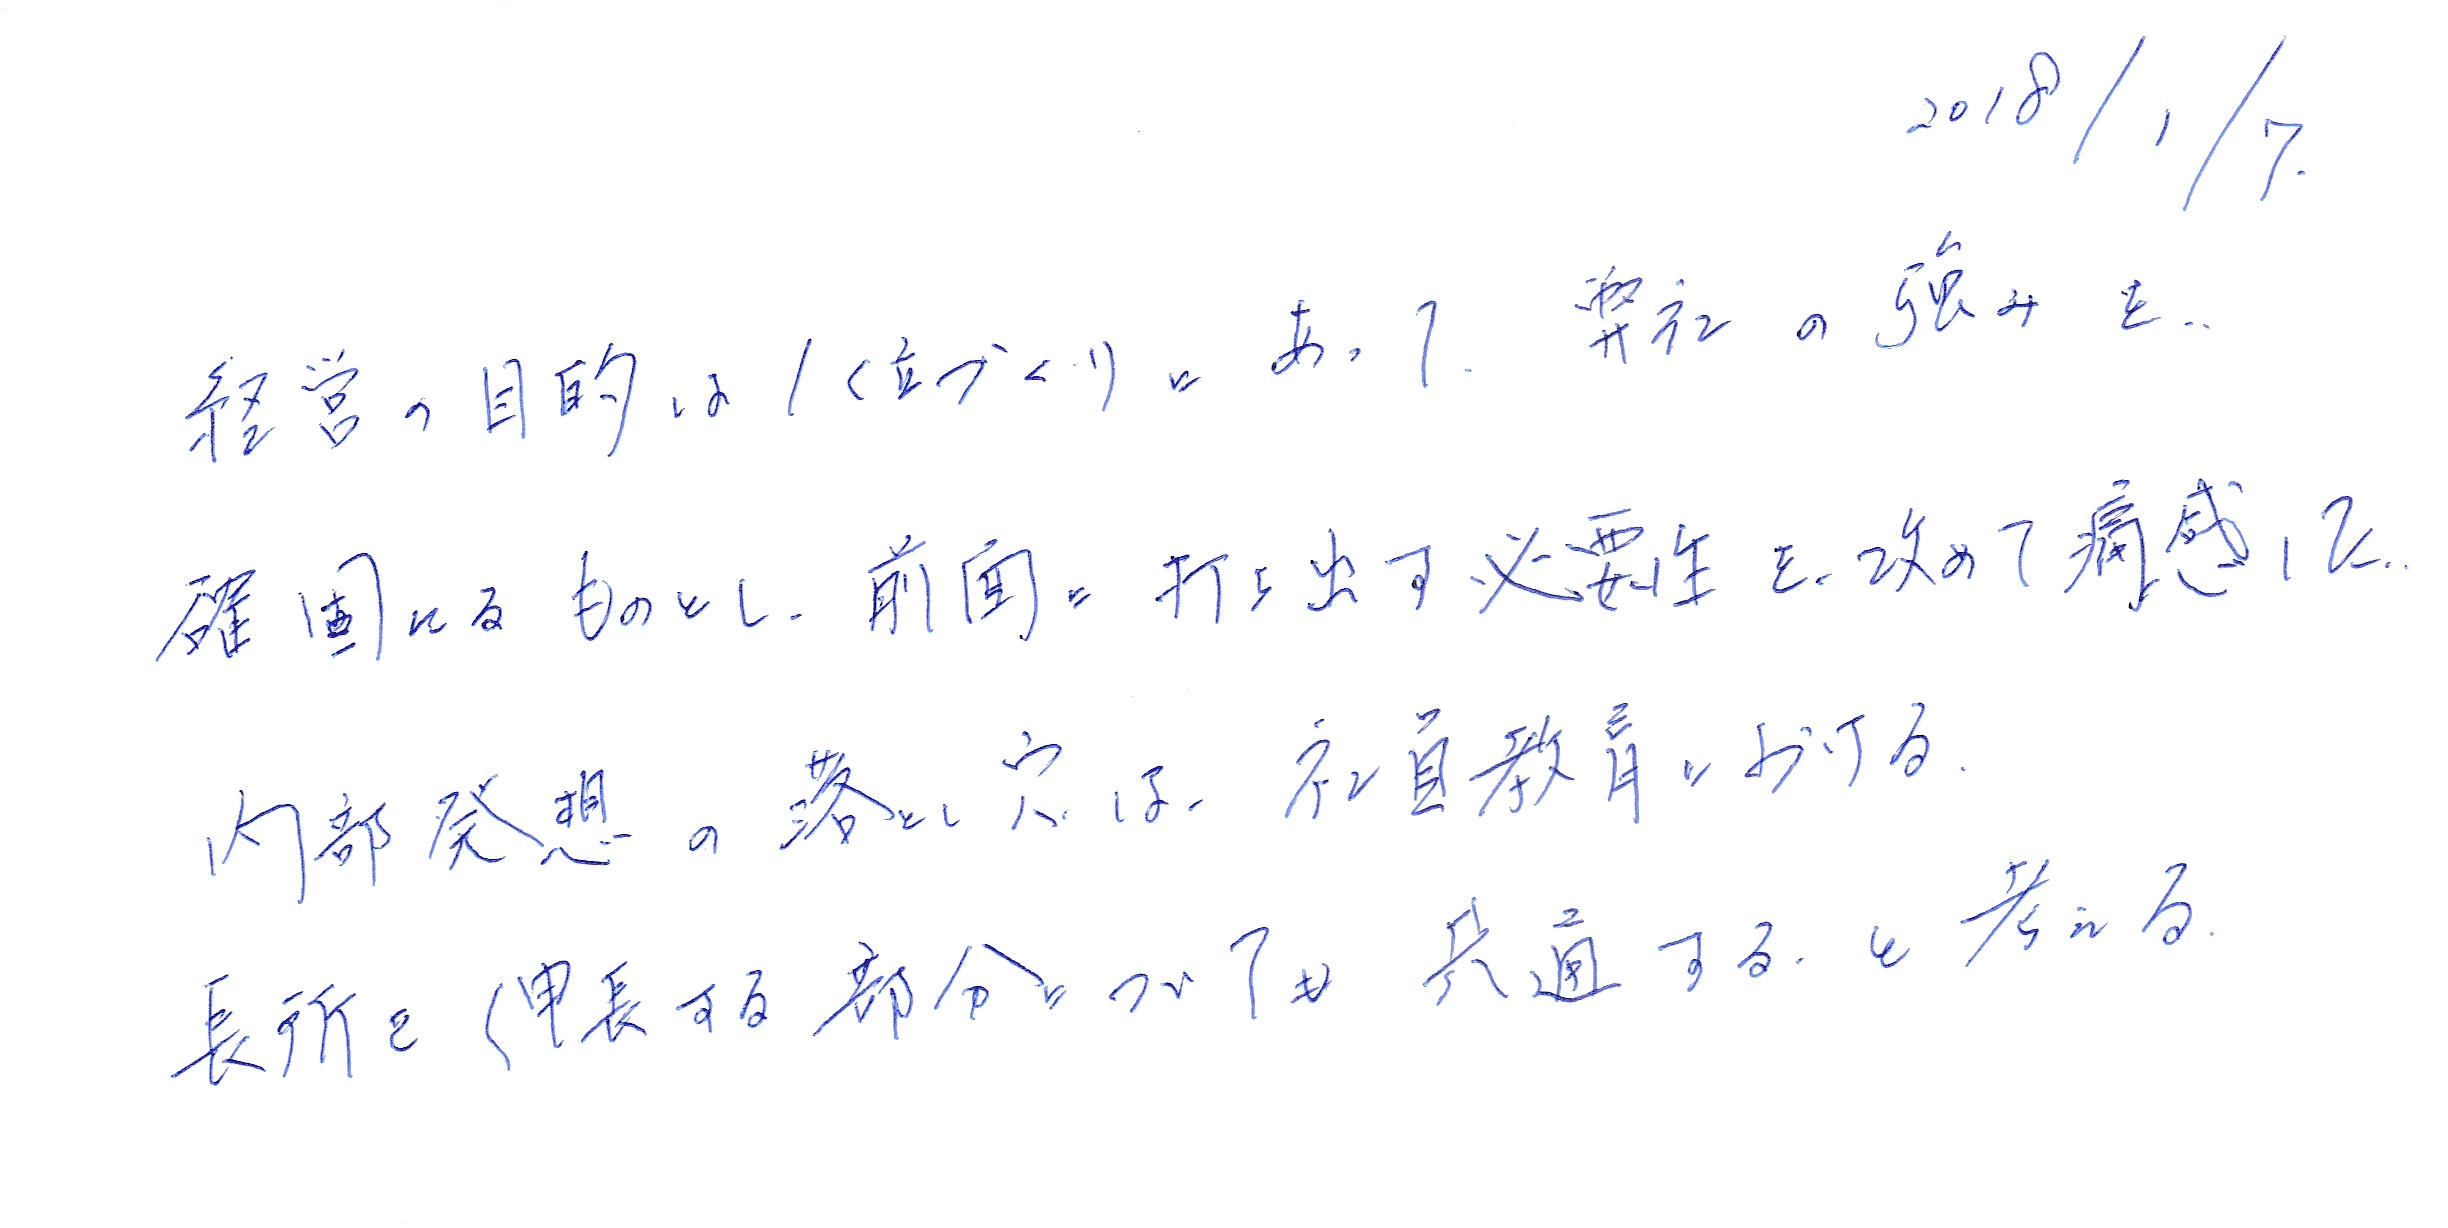 2018/1/7.
経営の目的は1位づくりにあって、弊社の強みを、
確固たるものとし、前面に打ち出す必要性を、改めて痛感した。
内部発想の落とし穴は、社員教育における、
長所を伸長する部分についても共通する、と考える。